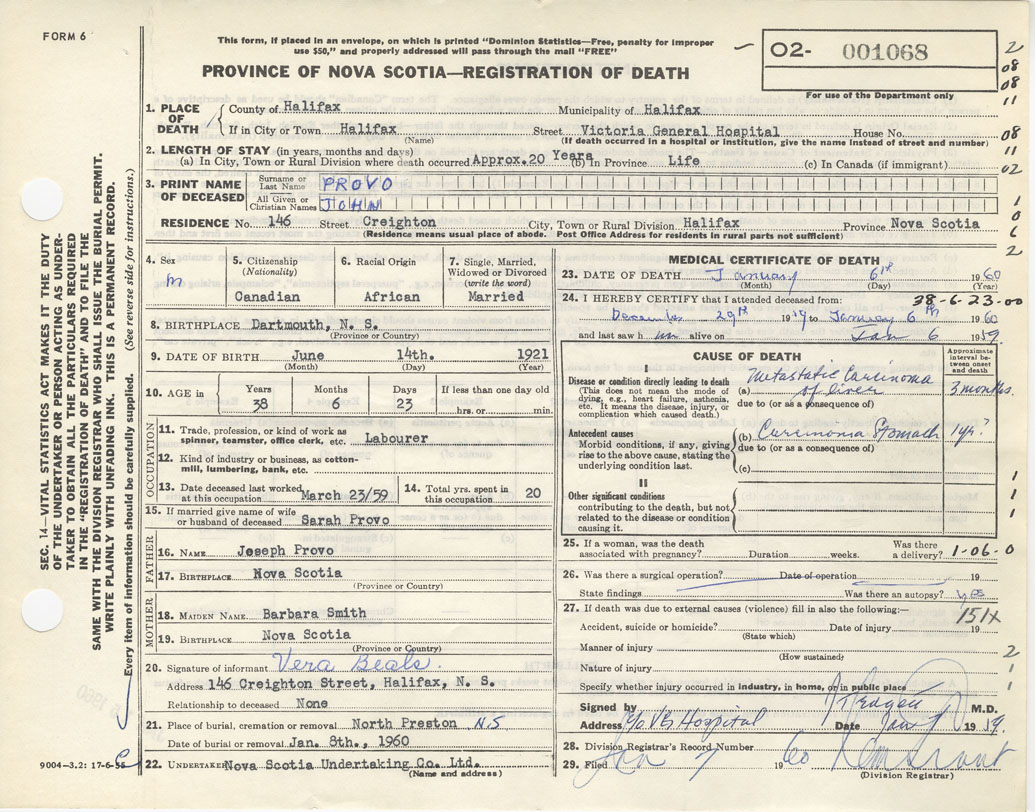 FORM 6
This form, if placed in an envelope, on which is printed "Dominion Statistics—Free, penalty for improper
use $50," and properly addressed will pass through the mail "FREE"
O2- 001068
For use of the Department only
PROVINCE OF NOVA SCOTIA—REGISTRATION OF DEATH
2
08
08
11
08
11
02
1
0
6
2
1. PLACE OF DEATH County of Halifax Municipality of Halifax
If in City or Town Halifax Street Victoria General Hospital House No.
(Name) (If death occurred in a hospital or institution, give the name instead of street and number)
2. LENGTH OF STAY (in years, months and days)
(a) In City, Town or Rural Division where death occurred Approx.20 Years (b) In Province Life (c) In Canada (if immigrant)
3. PRINT NAME OF DECEASED Surname or Last Name PROVO
All Given or Christian Names JOHN
RESIDENCE No. 146 Street Creighton City, Town or Rural Division Halifax Province Nova Scotia
(Residence means usual place of abode. Post Office Address for residents in rural parts not sufficient)
4. Sex M
5. Citizenship (Nationality) Canadian
6. Racial Origin African
7. Single, Married, Widowed or Divorced (write the word) Married
8. BIRTHPLACE Dartmouth, N. S.
(Province or Country)
9. DATE OF BIRTH June 14th. 1921
(Month) (Day) (Year)
10. AGE in Years 38 Months 6 Days 23 If less than one day old hrs. or min.
OCCUPATION
11. Trade, profession, or kind of work as spinner, teamster, office clerk, etc. Labourer
12. Kind of industry or business, as cotton-mill, lumbering, bank, etc.
13. Date deceased last worked at this occupation March 23/59
14. Total yrs. spent in this occupation 20
15. If married give name of wife or husband of deceased Sarah Provo
FATHER
16. NAME Joseph Provo
17. BIRTHPLACE Nova Scotia
(Province or Country)
MOTHER
18. MAIDEN NAME Barbara Smith
19. BIRTHPLACE Nova Scotia
(Province or Country)
20. Signature of informant Vera Beals.
Address 146 Creighton Street, Halifax, N. S.
Relationship to deceased None
21. Place of burial, cremation or removal North Preston N.S
Date of burial or removal Jan. 8th., 1960
22. UNDERTAKER Nova Scotia Undertaking Co. Ltd.
(Name and address)
MEDICAL CERTIFICATE OF DEATH
23. DATE OF DEATH January 6th 1960
(Month) (Day) (Year)
24. I HEREBY CERTIFY that I attended deceased from: 38-6-23-00
December 29th 1959 to January 6th 1960
and last saw him alive on Jan 6 1959
CAUSE OF DEATH
Approximate interval between onset and death
I
Disease or condition directly leading to death
(This does not mean the mode of dying, e.g., heart failure, asthenia, etc. It means the disease, injury, or complication which caused death.)
(a) Metastatic Carcinoma of liver 3 months.
due to (or as a consequence of)
Antecedent causes
Morbid conditions, if any, giving rise to the above cause, stating the underlying condition last.
(b) Carcinoma Stomach 1 yr?
due to (or as a consequence of)
(c)
II
Other significant conditions
contributing to the death, but not related to the disease or condition causing it.
1
1
1
25. If a woman, was the death associated with pregnancy? Duration weeks. Was there a delivery? 1-06-0
26. Was there a surgical operation? Date of operation 19
State findings Was there an autopsy? yes
27. If death was due to external causes (violence) fill in also the following:—
151X
Accident, suicide or homicide? Date of injury 19
(State which)
Manner of injury 2
(How sustained)
Nature of injury 1
Specify whether injury occurred in industry, in home, or in public place 1
Signed by M.D.
Address Hospital Date Jan 19
28. Division Registrar's Record Number
29. Filed Jan 7 1960
(Division Registrar)
9004-3.2: 17-6-55
SEC. 14—VITAL STATISTICS ACT MAKES IT THE DUTY
OF THE UNDERTAKER OR PERSON ACTING AS UNDER-
TAKER TO OBTAIN ALL THE PARTICULARS REQUIRED
IN THE "REGISTRATION OF DEATH" AND TO FILE THE
SAME WITH THE DIVISION REGISTRAR WHO SHALL ISSUE THE BURIAL PERMIT.
WRITE PLAINLY WITH UNFADING INK. THIS IS A PERMANENT RECORD.
Every item of information should be carefully supplied. (See reverse side for instructions.)